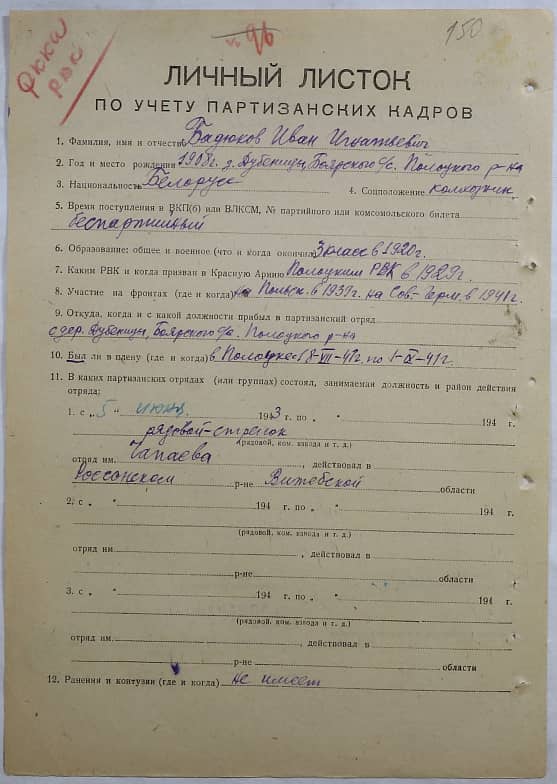 РККА
РВК
96
150
ЛИЧНЫЙ ЛИСТОК
ПО УЧЕТУ ПАРТИЗАНСКИХ КАДРОВ
1. Фамилия, имя и отчество Бадюков Иван Игнатьевич
2. Год и место рождения 1908 г. д. Дубеницы, Боярского с/с. Полоцкого р-на
3. Национальность Белорусс 4. Соцположение колхозник
5. Время поступления в ВКП(б) или ВЛКСМ, № партийного или комсомольского билета
беспартийный
6. Образование: общее и военное (что и когда окончил) 3 класс в 1920 г.
7. Каким РВК и когда призван в Красную Армию Полоцким РВК в 1929 г.
8. Участие на фронтах (где и когда) на Польск. в 1939 г. на Сов-Герм. в 1941 г.
9. Откуда, когда и с какой должности прибыл в партизанский отряд
с дер. Дубеницы, Боярского с/с. Полоцкого р-на
10. Был ли в плену (где и когда) в Полоцке с 8-VII-41 г. по 1-IX-41 г.
11. В каких партизанских отрядах (или группах) состоял, занимаемая должность и район действия
отряда:
1. с „5“ июня 1943 г. по „ “ 194 г.
рядовой-стрелок
(рядовой, ком. взвода и т. д.)
отряд им. Чапаева, действовал в
Россонском р-не Витебской области
2. с „ “ 194 г. по „ “ 194 г.
(рядовой, ком. взвода и т. д.)
отряд им. , действовал в
р-не области
3. с „ “ 194 г. по „ “ 194 г.
(рядовой, ком. взвода и т. д.)
отряд им. , действовал в
р-не области
12. Ранения и контузии (где и когда) не имеет